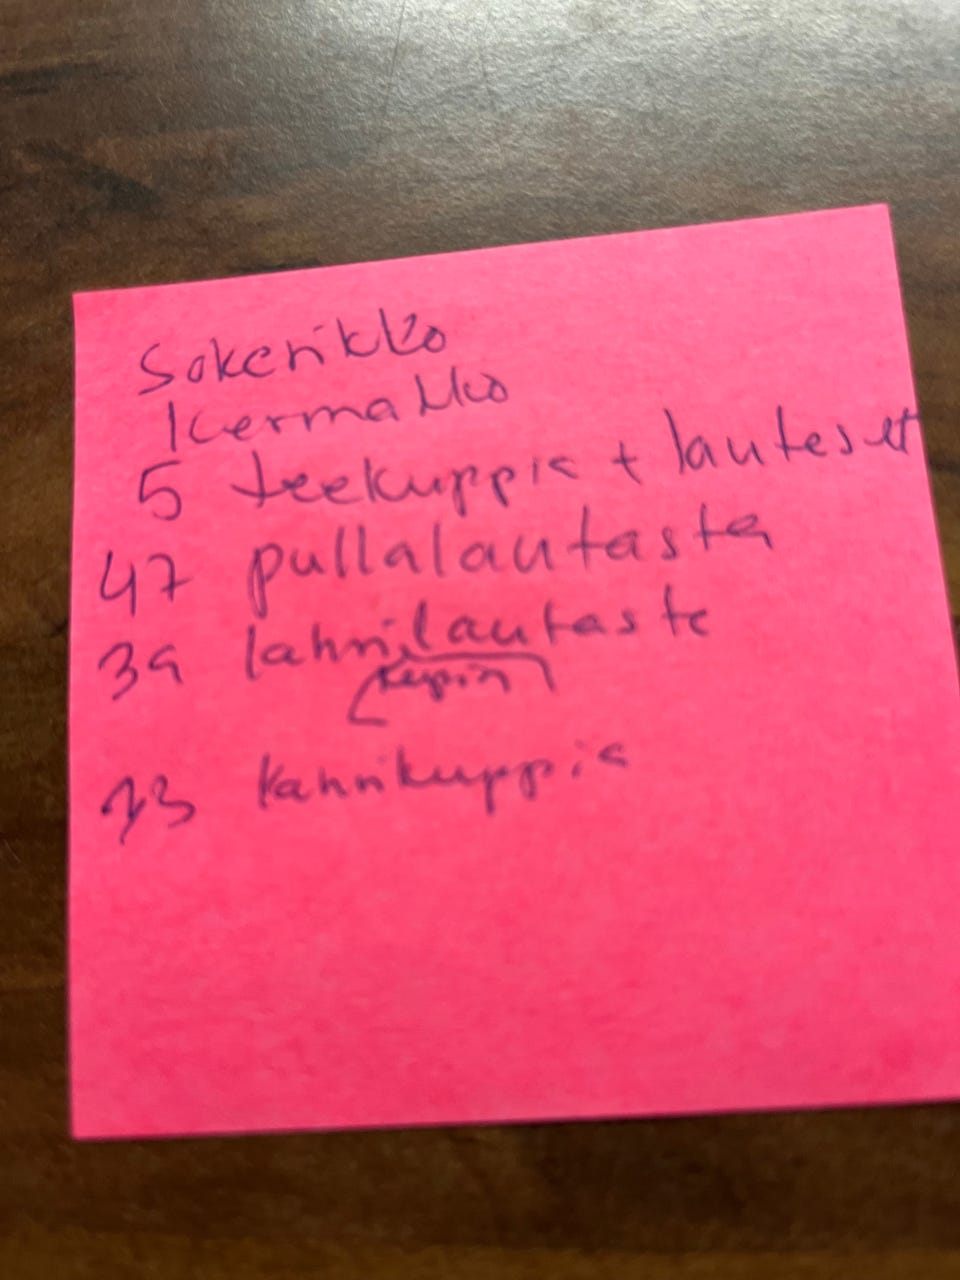 Sokerikko
Kermakko
5 teekuppia + lautaset
47 pullalautasta
39 kahvilautasta
kupin
23 kahvikuppia